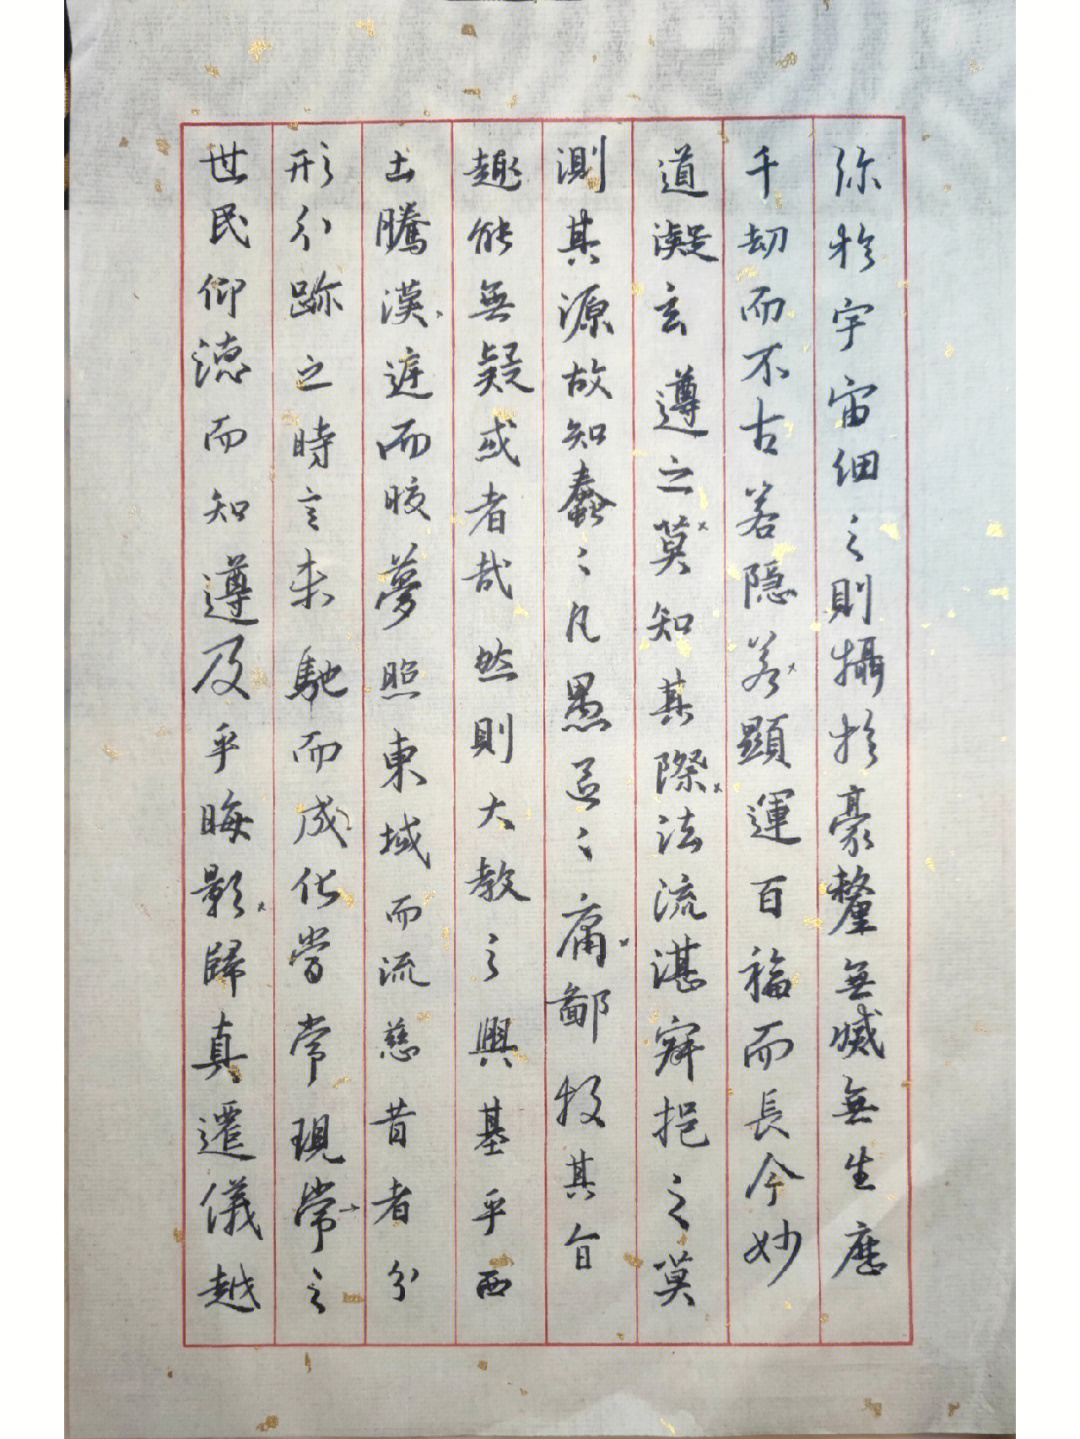 弥於宇宙細之則攝於豪釐無滅無生歷
千劫而不古若隱若顯運百福而長今妙
道凝玄遵之莫知其際法流湛寂挹之莫
測其源故知蠢〻凡愚區〻庸鄙投其旨
趣能無疑或者哉然則大教之興基乎西
土騰漢庭而皎夢照東域而流慈昔者分
形分跡之時言未馳而成化當常現常之
世民仰德而知遵及乎晦影歸真遷儀越